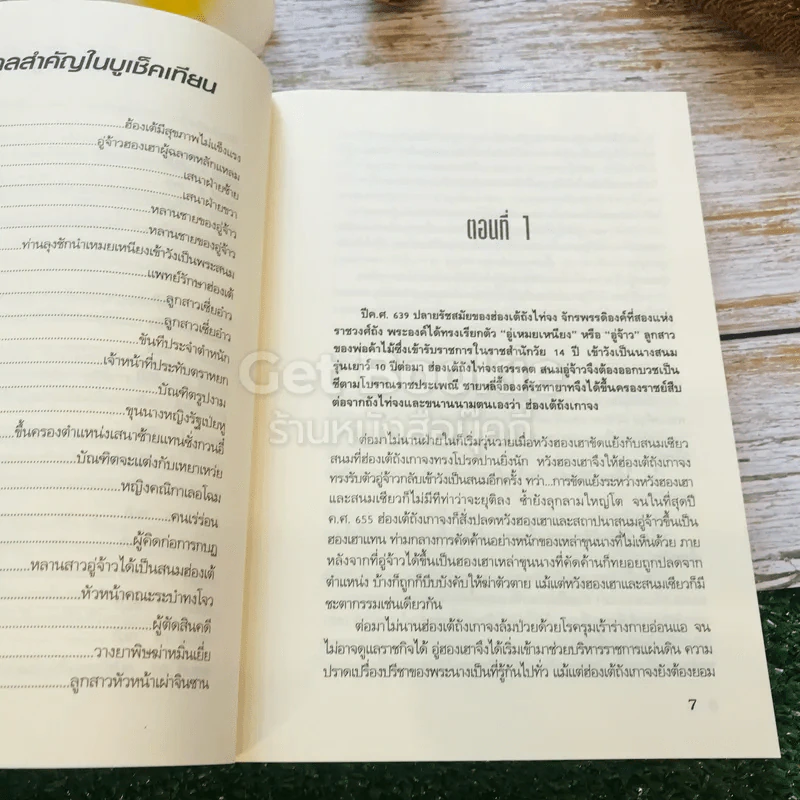 ลสำคัญในบูเช็คเทียน
ฮ่องเต้มีสุขภาพไม่แข็งแรง
อู่จ้าวฮองเฮาผู้ฉลาดหลักแหลม
เสนาฝ่ายซ้าย
เสนาฝ่ายขวา
หลานชายของอู่จ้าว
หลานชายของอู่จ้าว
ท่านลุงชักนำเหมยเหนียงเข้าวังเป็นพระสนม
แพทย์รักษาฮ่องเต้
ลูกสาวเซี่ยอ๋าว
ลูกสาวเซี่ยอ๋าว
ขันทีประจำตำหนัก
เจ้าหน้าที่ประทับตราหยก
บัณฑิตรูปงาม
ขุนนางหญิงรัฐเปยหู
ขึ้นครองตำแหน่งเสนาซ้ายแทนซั่งกวนอี้
บัณฑิตจะแต่งกับเหยาเหว่ย
หญิงคณิกาเลอโฉม
คนเร่ร่อน
ผู้คิดก่อการกบฏ
หลานสาวอู่จ้าวได้เป็นสนมฮ่องเต้
หัวหน้าคณะระบำทงโจว
ผู้ตัดสินคดี
วางยาพิษฆ่าหมิ่นเยี่ย
ลูกสาวหัวหน้าเผ่าจินซาน
ตอนที่ 1
ปีค.ศ. 639 ปลายรัชสมัยของฮ่องเต้ถังไท่จง จักรพรรดิองค์ที่สองแห่ง
ราชวงศ์ถัง พระองค์ได้ทรงเรียกตัว "อู่เหมยเหนียง" หรือ "อู่จ้าว" ลูกสาว
ของพ่อค้าไม้ซึ่งเข้ารับราชการในราชสำนักวัย 14 ปี เข้าวังเป็นนางสนม
รุ่นเยาว์ 10 ปีต่อมา ฮ่องเต้ถังไท่จงสวรรคต สนมอู่จ้าวจึงต้องออกบวชเป็น
ชีตามโบราณราชประเพณี ชายหลี่จื้อองค์รัชทายาทจึงได้ขึ้นครองราชย์สืบ
ต่อจากถังไท่จงและขนานนามตนเองว่า ฮ่องเต้ถังเกาจง
ต่อมาไม่นานฝ่ายในก็เริ่มวุ่นวายเมื่อหวังฮองเฮาขัดแย้งกับสนมเซียว
สนมที่ฮ่องเต้ถังเกาจงทรงโปรดปานยิ่งนัก หวังฮองเฮาจึงให้ฮ่องเต้ถังเกาจง
ทรงรับตัวอู่จ้าวกลับเข้าวังเป็นสนมอีกครั้ง ทว่า...การขัดแย้งระหว่างหวังฮองเฮา
และสนมเซียวก็ไม่มีทีท่าว่าจะยุติลง ซ้ำยังลุกลามใหญ่โต จนในที่สุดปี
ค.ศ. 655 ฮ่องเต้ถังเกาจงก็สั่งปลดหวังฮองเฮาและสถาปนาสนมอู่จ้าวขึ้นเป็น
ฮองเฮาแทน ท่ามกลางการคัดค้านอย่างหนักของเหล่าขุนนางที่ไม่เห็นด้วย ภาย
หลังจากที่อู่จ้าวได้ขึ้นเป็นฮองเฮาเหล่าขุนนางที่คัดค้านก็ทยอยถูกปลดจาก
ตำแหน่ง บ้างก็ถูกบีบบังคับให้ฆ่าตัวตาย แม้แต่หวังฮองเฮาและสนมเซียวก็มี
ชะตากรรมเช่นเดียวกัน
ต่อมาไม่นานฮ่องเต้ถังเกาจงล้มป่วยด้วยโรครุมเร้าร่างกายอ่อนแอ จน
ไม่อาจดูแลราชกิจได้ อู่ฮองเฮาจึงได้เริ่มเข้ามาช่วยบริหารราชการแผ่นดิน ความ
ปราดเปรื่องปรีชาของพระนางเป็นที่รู้กันไปทั่ว แม้แต่ฮ่องเต้ถังเกาจงยังต้องยอม
7
ร้านหนังสือยุคดี